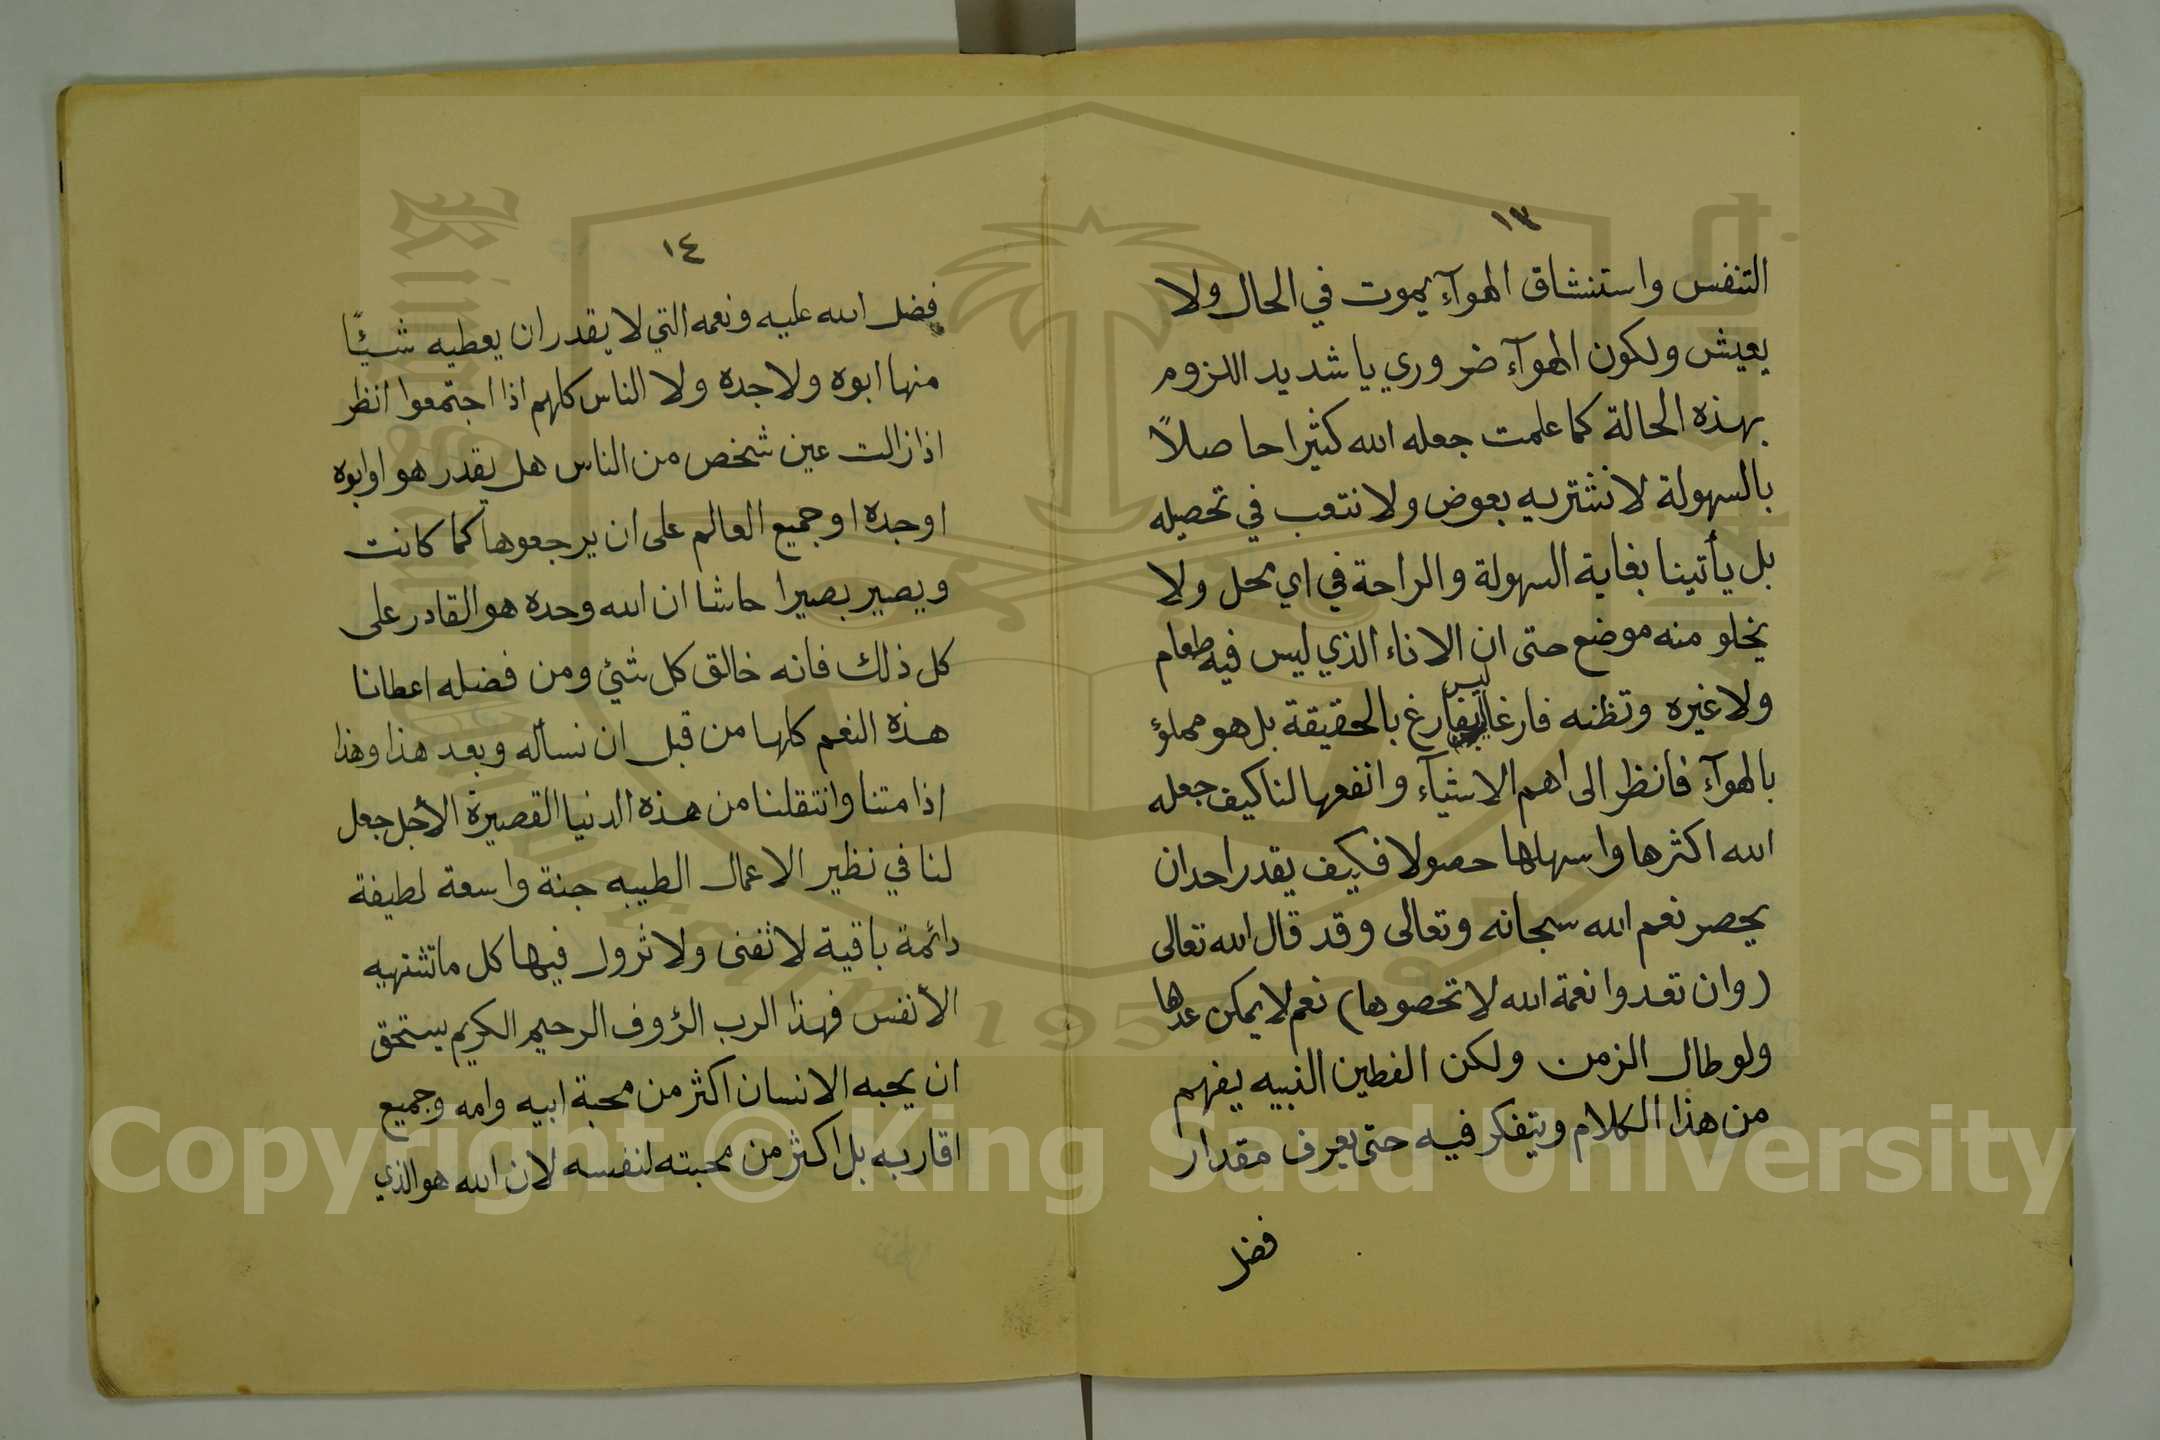 ١٣
التنفس واستنشاق الهوآء يموت في الحال ولا
يعيش ولكون الهوآء ضروري يا شديد اللزوم
بهذه الحالة كما علمت جعله الله كثيرا حاصلاً
بالسهولة لا نشتريه بعوض ولا نتعب في تحصيله
بل يأتينا بغاية السهولة والراحة في اي محل ولا
يخلو منه موضع حتى ان الاناء الذي ليس فيه طعام
ولا غيره وتظنه فارغا ليس بفارغ بالحقيقة بل هو مملؤ
بالهوآء فانظر الى اهم الاشيآء وانفعها لنا كيف جعله
الله اكثرها واسهلها حصولا فكيف يقدر احد ان
يحصر نعم الله سبحانه وتعالى وقد قال الله تعالى
(وان تعدوا نعمة الله لا تحصوها) نعم لا يمكن عدها
ولو طال الزمن ولكن الفطين النبيه يفهم
من هذا الكلام ويتفكر فيه حتى يعرف مقدار
فضل
١٤
فضل الله عليه ونعمه التي لا يقدر ان يعطيه شيئًا
منها ابوه ولا جده ولا الناس كلهم اذا اجتمعوا انظر
اذا زالت عين شخص من الناس هل يقدر هو او ابوه
او جده او جميع العالم على ان يرجعوها كما كانت
ويصير بصيرا حاشا ان الله وحده هو القادر على
كل ذلك فانه خالق كل شئي ومن فضله اعطانا
هذه النعم كلها من قبل ان نسأله وبعد هذا وهذا
اذا متنا وانتقلنا من هذه الدنيا القصيرة الأجل جعل
لنا في نظير الاعمال الطيبه جنة واسعة لطيفة
دائمة باقية لا تفنى ولا تزول فيها كل ما تشتهيه
الأنفس فهذا الرب الرؤوف الرحيم الكريم يستحق
ان يحبه الانسان اكثر من محبة ابيه وامه وجميع
اقاربه بل اكثر من محبته لنفسه لان الله هو الذي
Copyright © King Saud University
King Saud University
1957